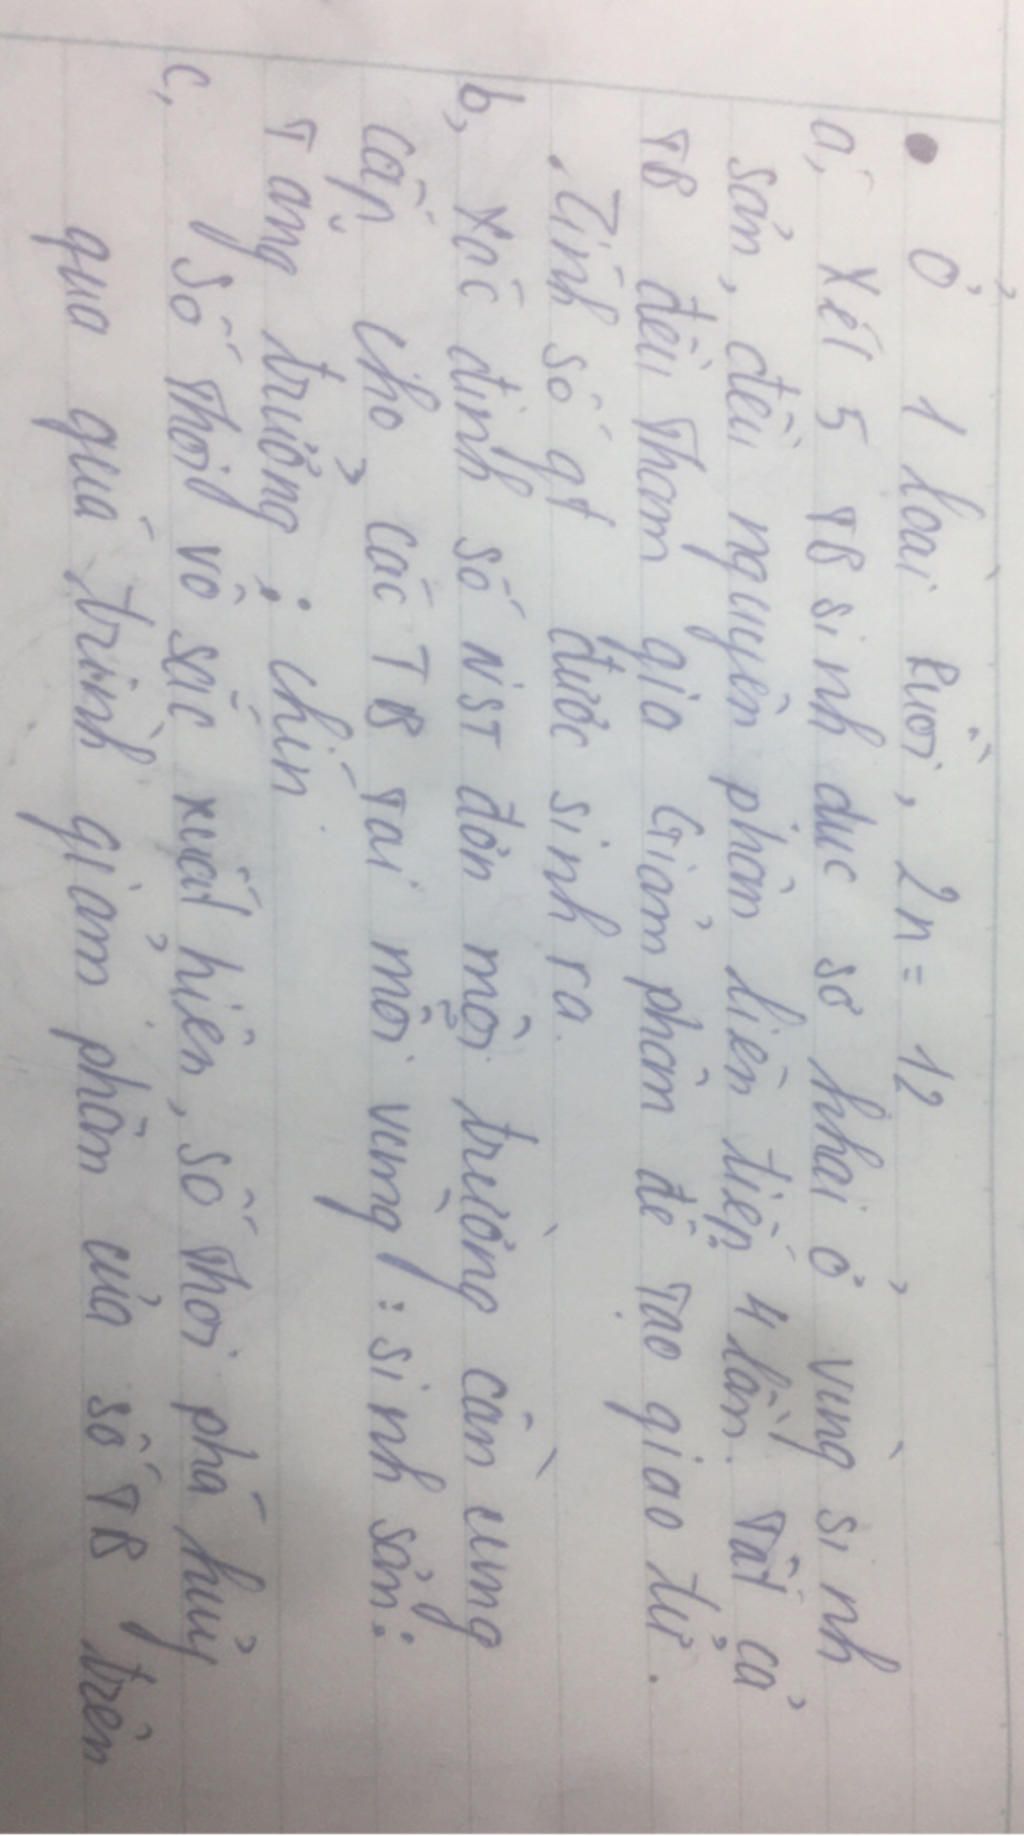 Ở 1 loài Ruồi, 2n = 12
a, Xét 5 TB sinh dục sơ khai ở vùng sinh
sản, đều nguyên phân liên tiếp 4 lần. Tất cả
TB đều tham gia Giảm phân để tạo giao tử.
. Tính số gt được sinh ra.
b, Xác định số NST đơn môi trường cần cung
cấp cho các TB tại mỗi vùng: sinh sản;
Tăng trưởng; chín.
c, Số thoi vô sắc xuất hiện, số thoi phá huỷ
qua quá trình giảm phân của số TB trên